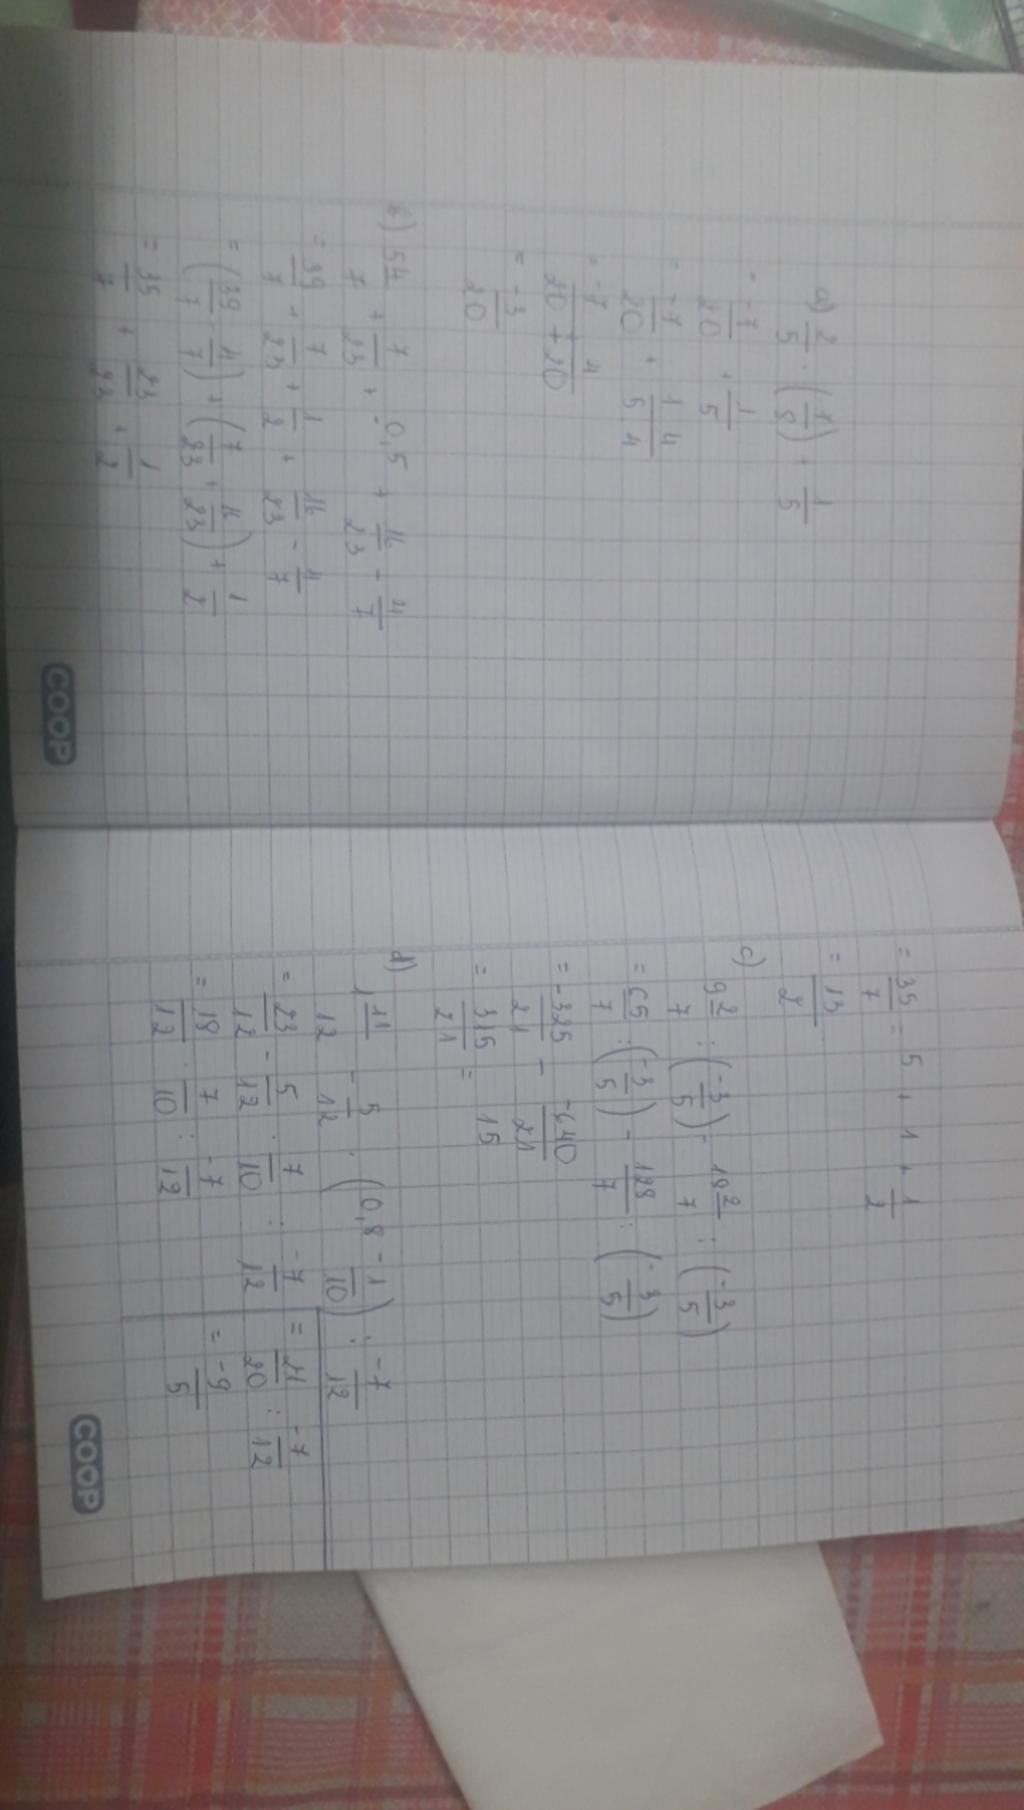 a) 2/5 · (-7/8) + 1/5
= -7/20 + 1/5
= -7/20 + 1/5 4/4
= -7/20 + 4/20
= -3/20
b) 5 4/7 + 7/23 + 0,5 + 16/23 - 4/7
= 39/7 + 7/23 + 1/2 + 16/23 - 4/7
= (39/7 - 4/7) + (7/23 + 16/23) + 1/2
= 35/7 + 23/23 + 1/2
COOP
= 35/7 = 5 + 1 + 1/2
= 13/2
c) 9 2/7 : (-3/5) - 18 2/7 : (-3/5)
= 65/7 : (-3/5) - 128/7 : (-3/5)
= -325/21 - -640/21
= 315/21 = 15
d) 1 11/12 - 5/12 · (0,8 - 1/10) : -7/12
= 23/12 - 5/12 · 7/10 : -7/12
= 18/12 · 7/10 : -7/12
= 21/20 : -7/12
= -9/5
COOP